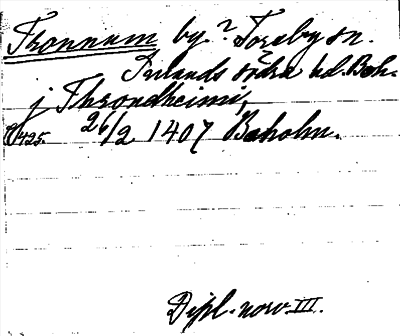 Tronnum by.? Torsby sn.
Inlands södra hd. Boh.
j Throndheimi,
425. 26/2 1407 Baholm.
Dipl. norv. III.